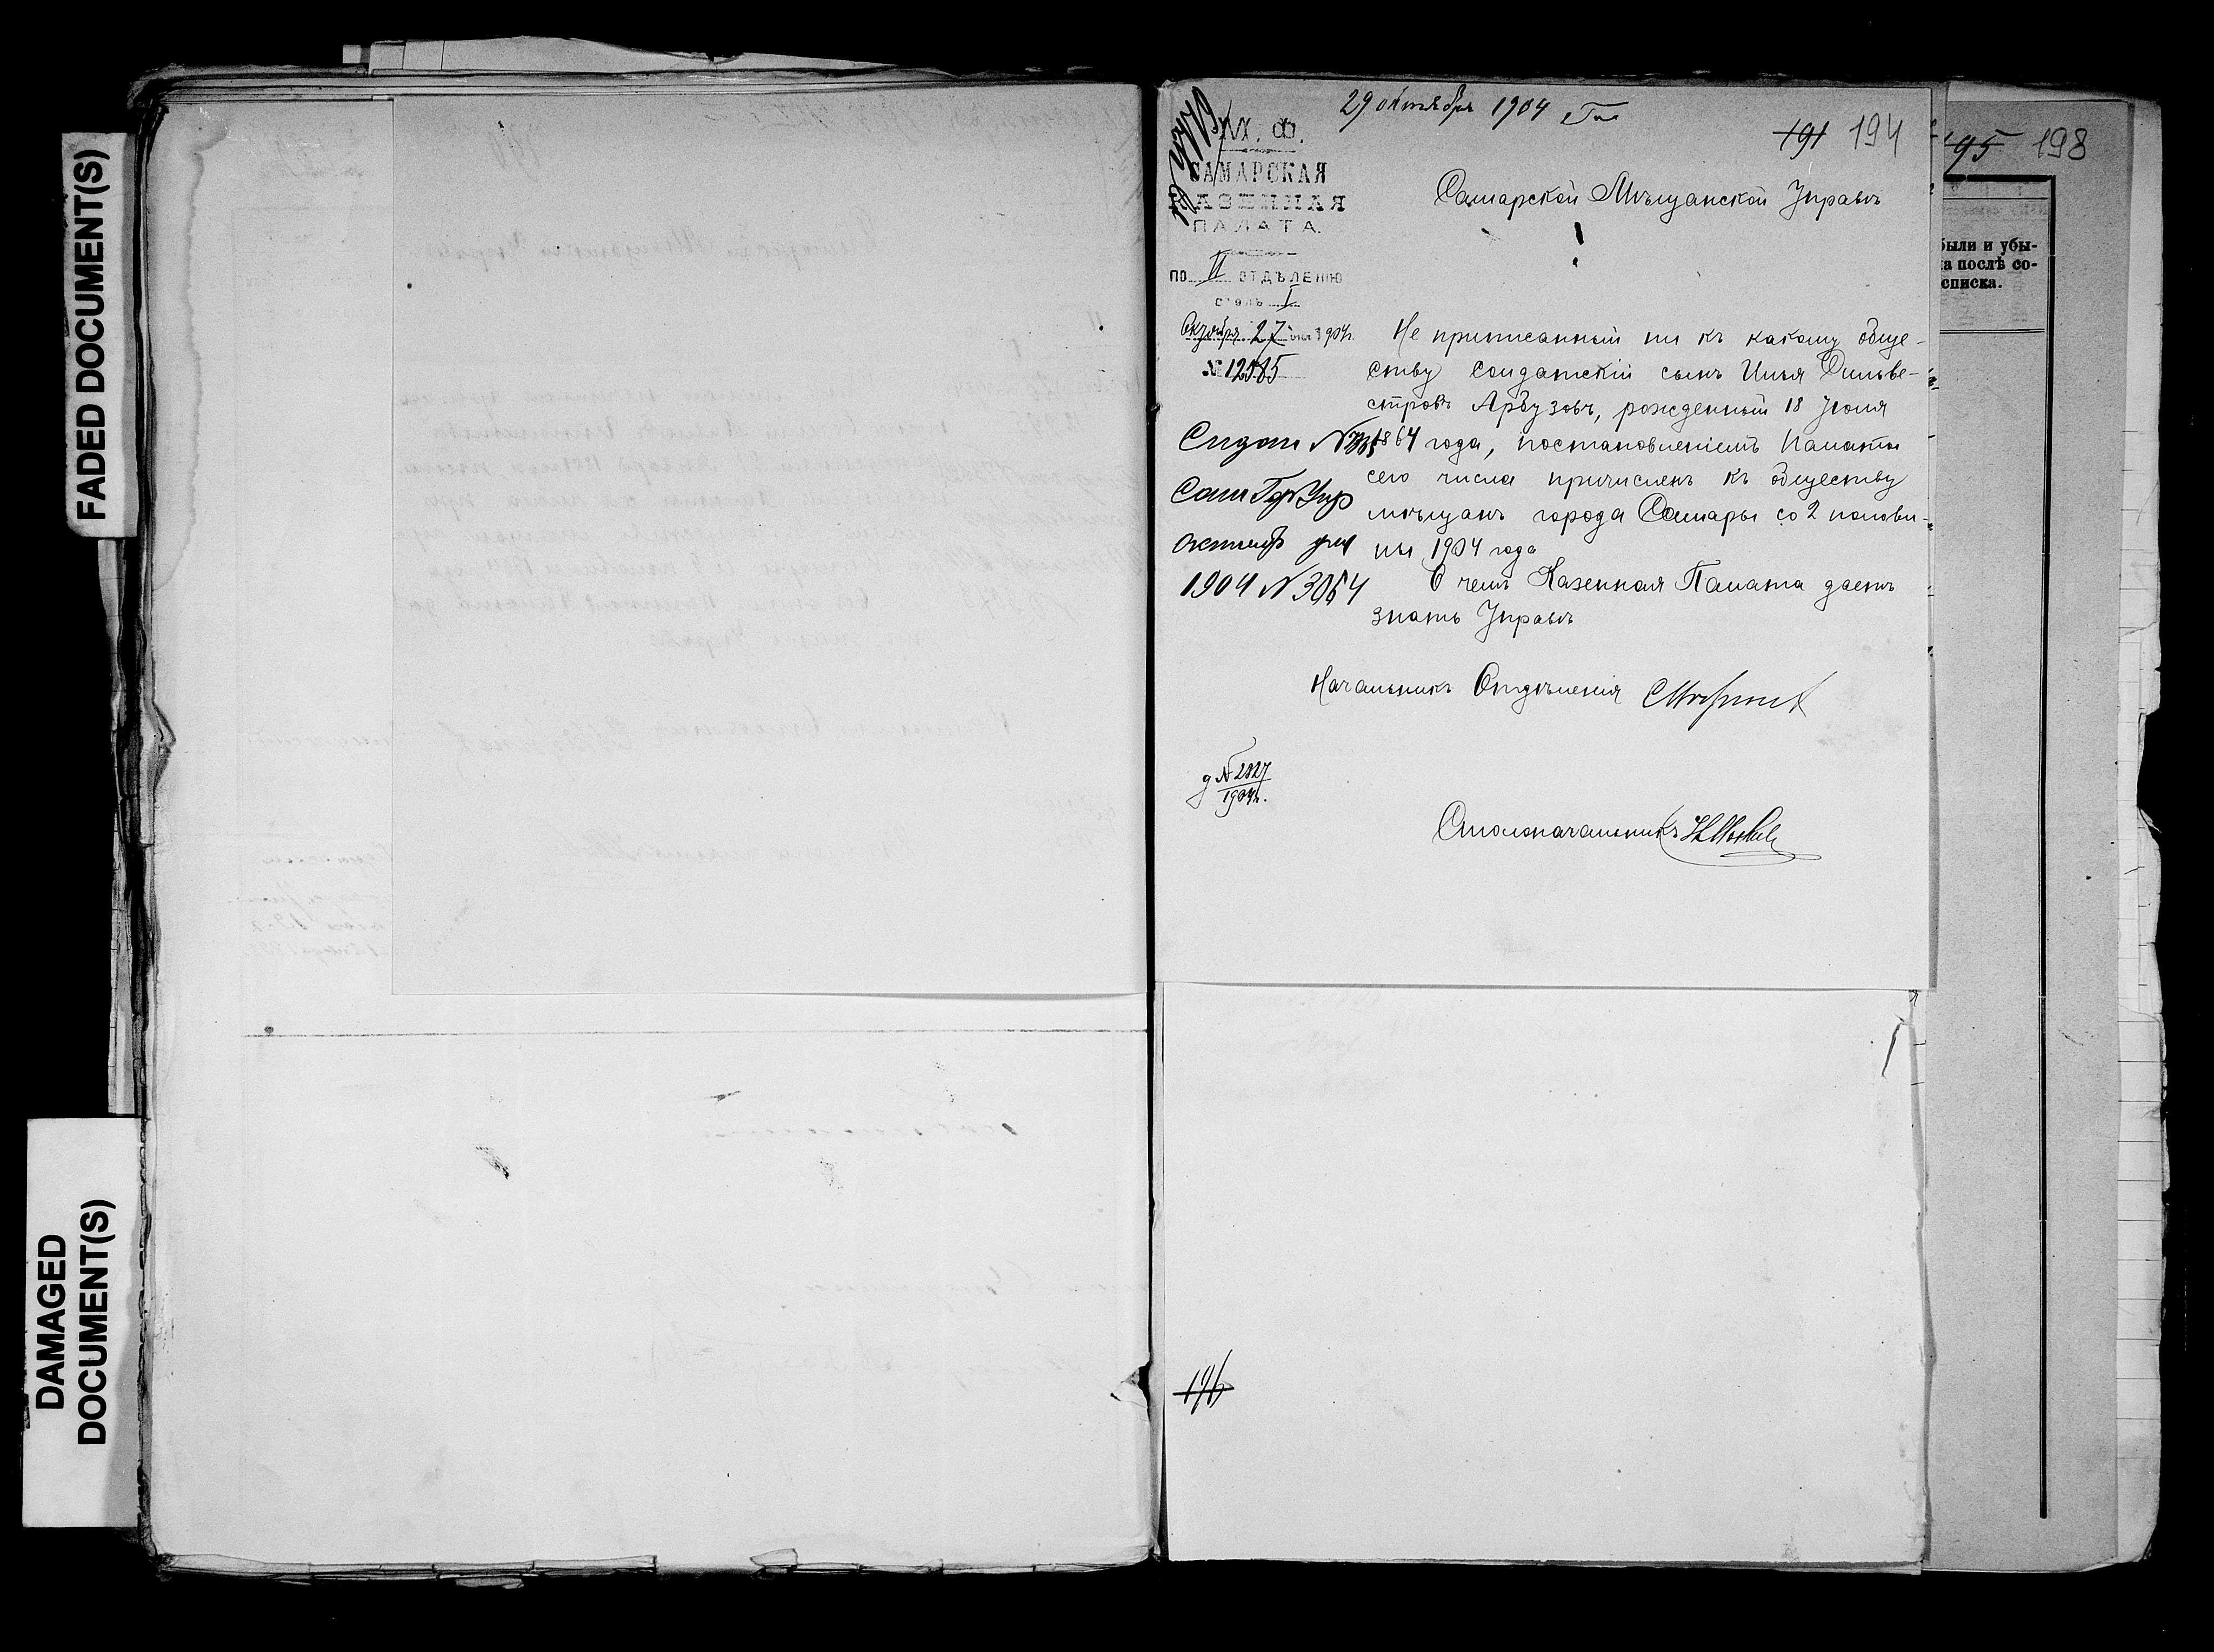 FADED DOCUMENT(S)
DAMAGED
DOCUMENT(S)
29 октября 1904
191 194
М. Ф.
САМАРСКАЯ
КАЗЕННАЯ
ПАЛАТА.
по II ОТДѢЛЕНІЮ
столъ I
Октября 27 дня 1904 г.
№ 12585
Самарской Мѣщанской Управѣ
Не приписанный ни къ какому обще-
ству солдатскій сынъ Илья Сильве-
стровъ Арбузовъ, рожденный 18 Іюля
1864 года, постановленіемъ Палаты
сего числа причисленъ къ обществу
мѣщанъ города Самары со 2 полови-
ны 1904 года
О чемъ Казенная Палата даетъ
знать Управѣ
Сам Гор Упр
1904 № 3064
Начальникъ Отдѣленія
д № 2827
1904 г.
Столоначальникъ
196
195 198
были и убы-
а послѣ со-
списка.